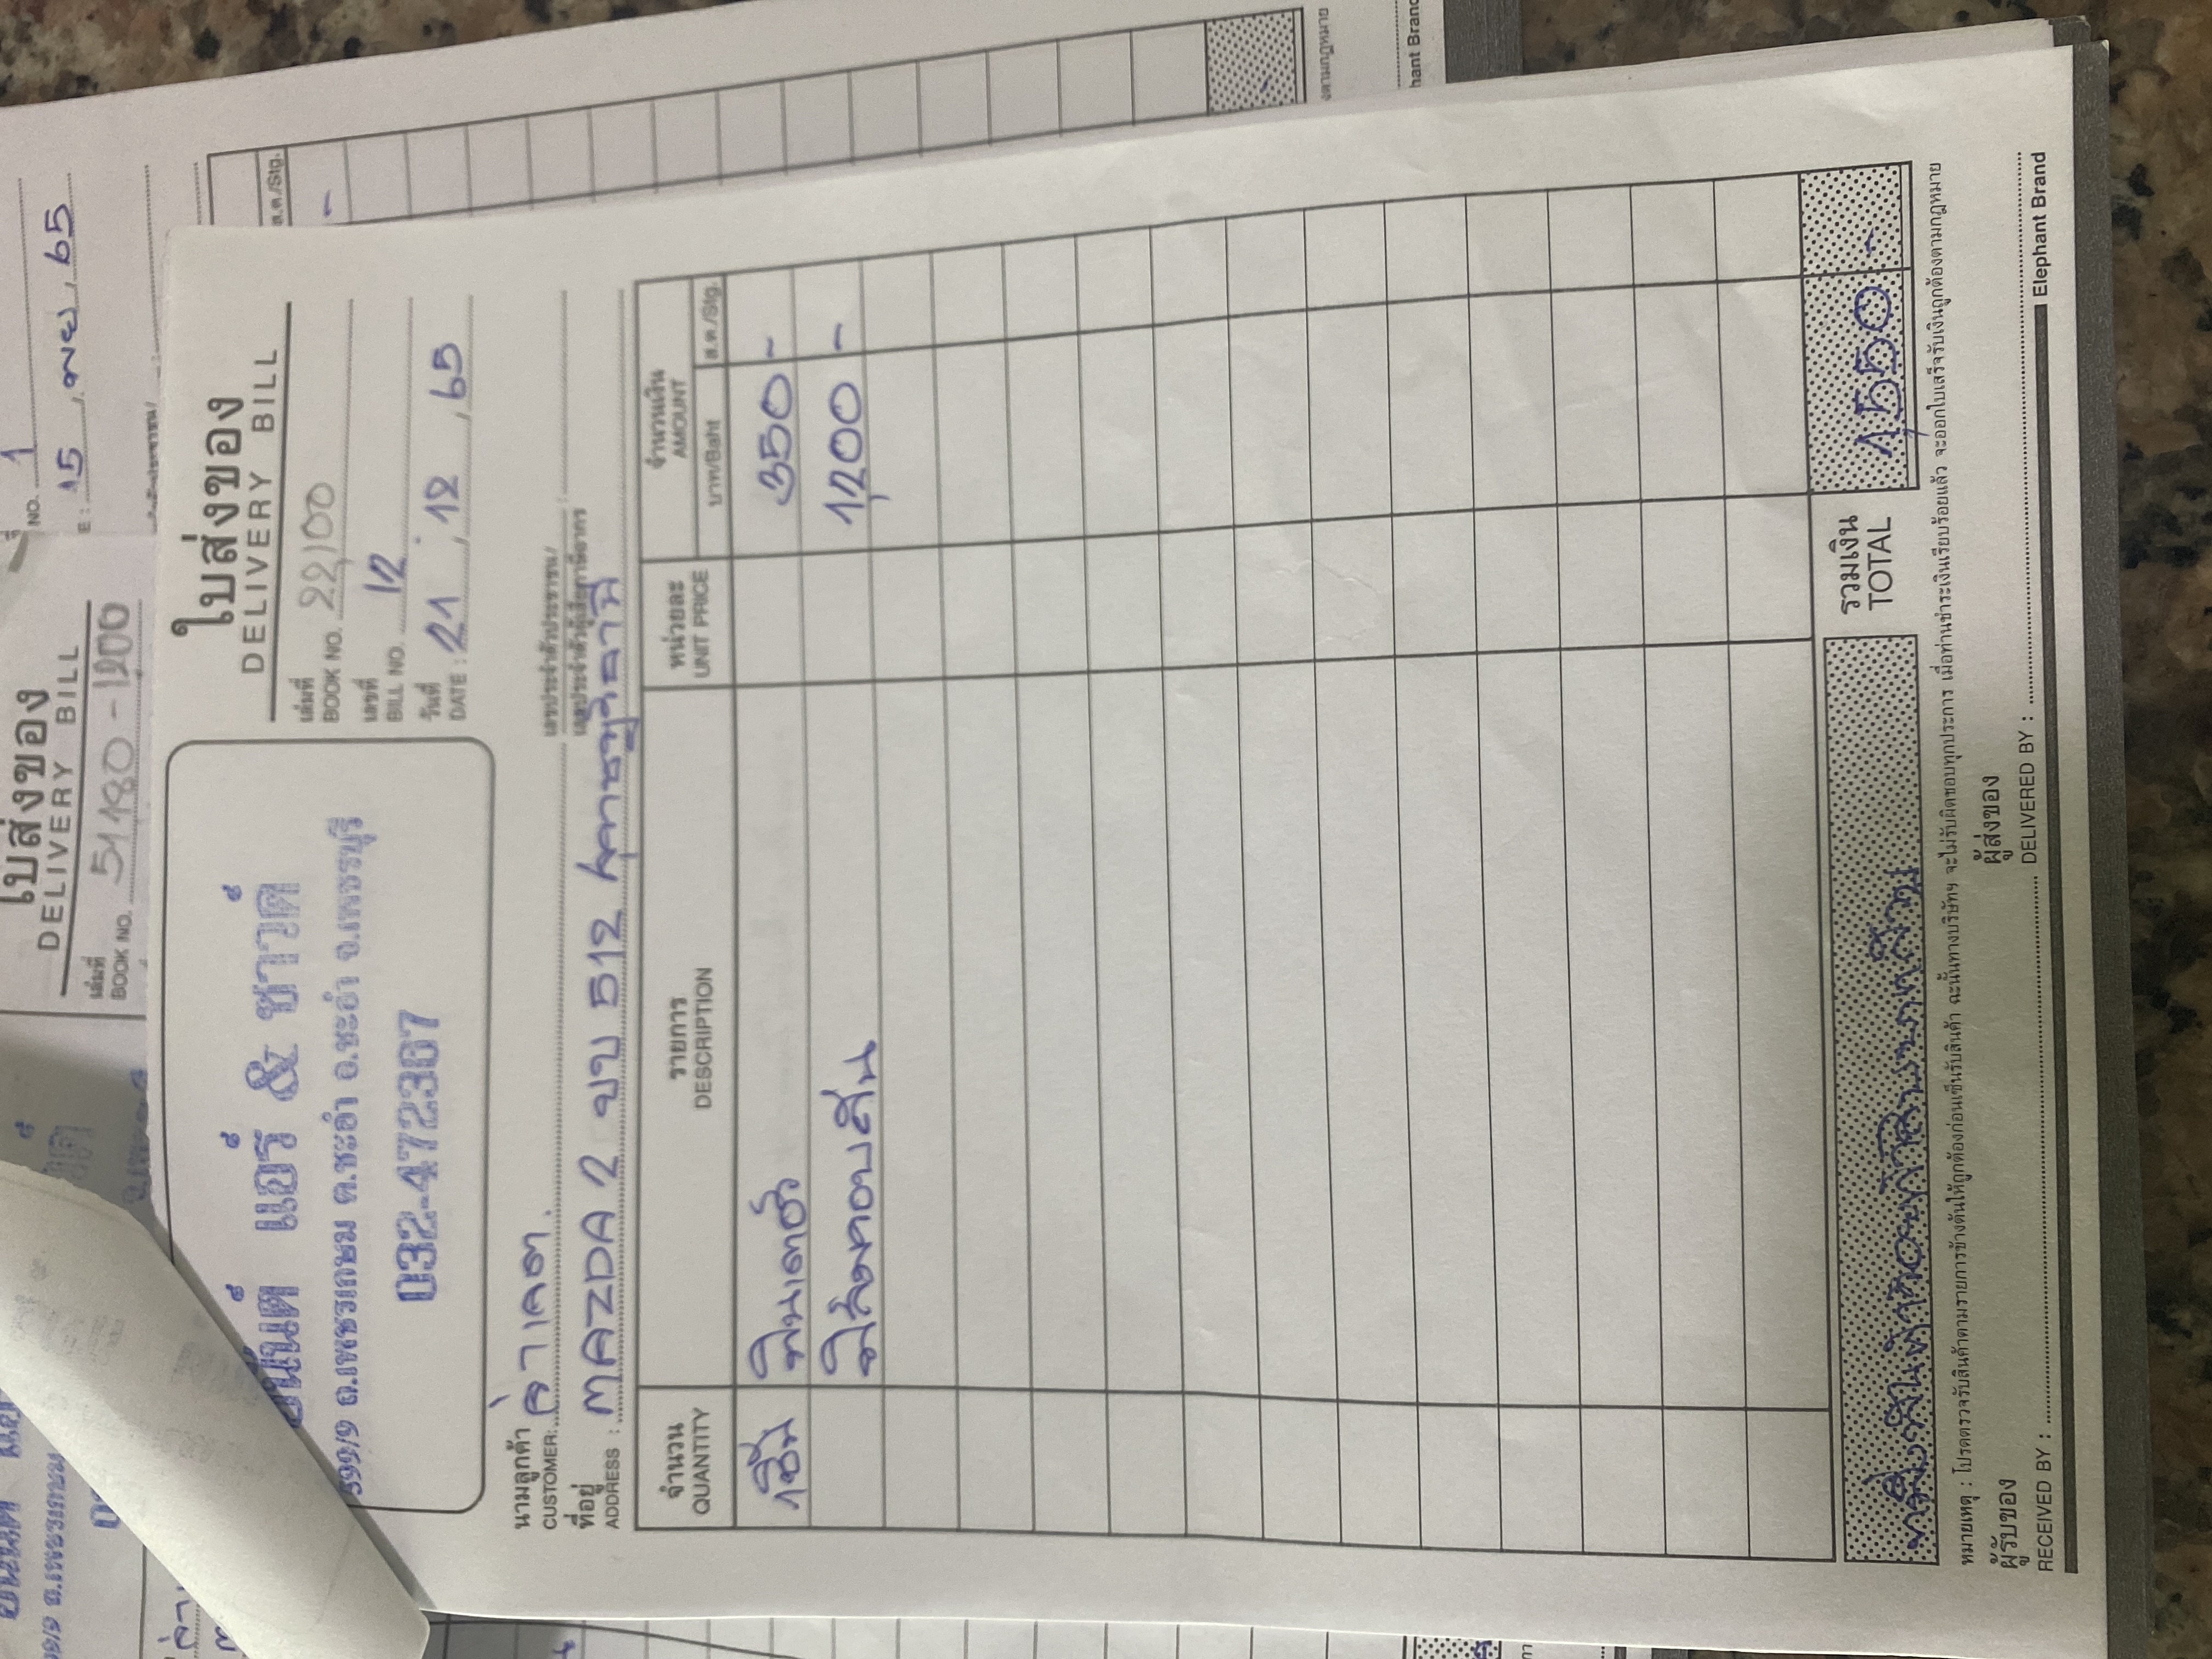 ใบส่งของ
DELIVERY BILL
เล่มที่
BOOK NO. 22100
เลขที่
BILL NO. 12
วันที่
DATE : 21 , 12 , 65
แอร์ & ซาวด์
599/9 ถ.เพชรเกษม ต.ชะอำ อ.ชะอำ จ.เพชรบุรี
032-472307
นามลูกค้า
CUSTOMER:
เลขประจำตัวประชาชน/
เลขประจำตัวผู้เสียภาษีอากร
ที่อยู่
ADDRESS : MAZDA 2 ขบ 512
จำนวน
QUANTITY
รายการ
DESCRIPTION
หน่วยละ
UNIT PRICE
จำนวนเงิน
AMOUNT
บาท/Baht
ส.ต./Stg.
350 -
1,200 -
รวมเงิน
TOTAL
1,550 -
หมายเหตุ : โปรดตรวจรับสินค้าตามรายการข้างต้นให้ถูกต้องก่อนเซ็นรับสินค้า ฉะนั้นทางบริษัทฯ จะไม่รับผิดชอบทุกประการ เมื่อท่านชำระเงินเรียบร้อยแล้ว จะออกใบเสร็จรับเงินถูกต้องตามกฎหมาย
ผู้รับของ
RECEIVED BY :
ผู้ส่งของ
DELIVERED BY :
Elephant Brand
NO. 1
15 , , 65
ใบส่งของ
DELIVERY BILL
เล่มที่
BOOK NO. 51180 - 1200
ส.ต./Stg.
-
งตามกฎหมาย
hant Brand